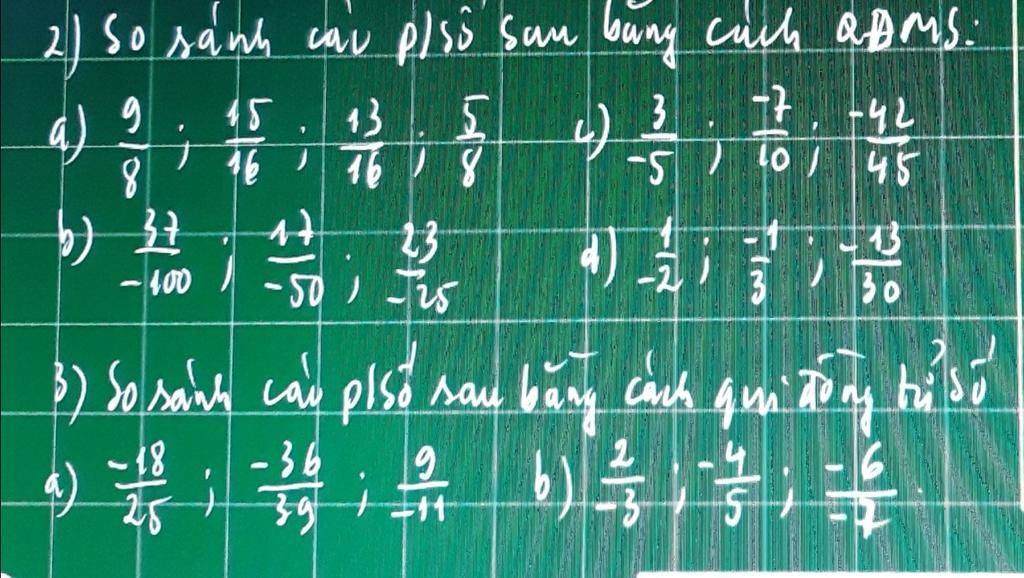 2) So sánh các p/số sau bằng cách QĐMS:
a) 9/8 ; 15/16 ; 13/16 ; 5/8 c) 3/-5 ; -7/10 ; -42/45
b) 37/-100 ; 17/-50 ; 23/-25 d) 1/-2 ; -1/3 ; -13/30
3) So sánh các p/số sau bằng cách qui đồng tử số
a) -18/25 ; -36/39 ; 9/-11 b) 2/-3 ; -4/5 ; -6/-7.